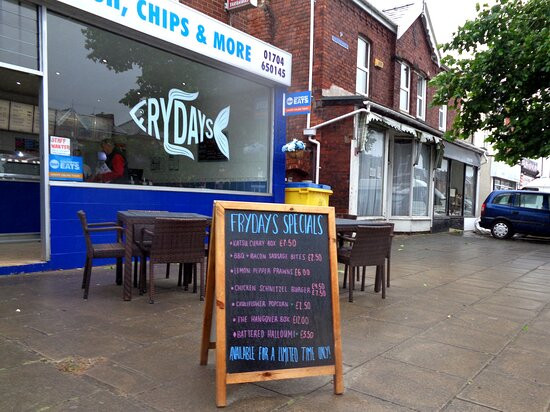 SH, CHIPS & MORE
01704
650145
FRYDAYS
EATS
FRYDAYS SPECIALS
KATSU CURRY BOX £7.50
BBQ + BACON SAUSAGE BITES £2.50
LEMON PEPPER PRAWNS £6.00
CHICKEN SCHNITZEL BURGER £4.50
£7.50
CAULIFLOWER POPCORN - £2.50
THE HANGOVER BOX £12.00
BATTERED HALLOUMI - £3.50
AVAILABLE FOR A LIMITED TIME ONLY!
EATS